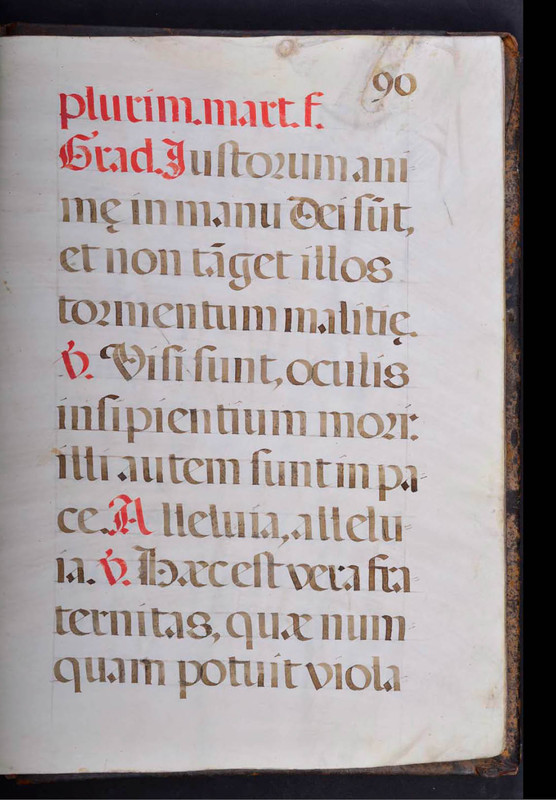 90
plurim. mart. f.
Grad. Justorum ani
mę in manu Dei sūt,
et non tāget illos
tormentum malitię.
℣. Visi sunt, oculis
insipientium mori:
illi autem sunt in pa-
ce. Alleluia, allelu-
ia. ℣. Hæc est vera fra
ternitas, quæ num-
quam potuit viola